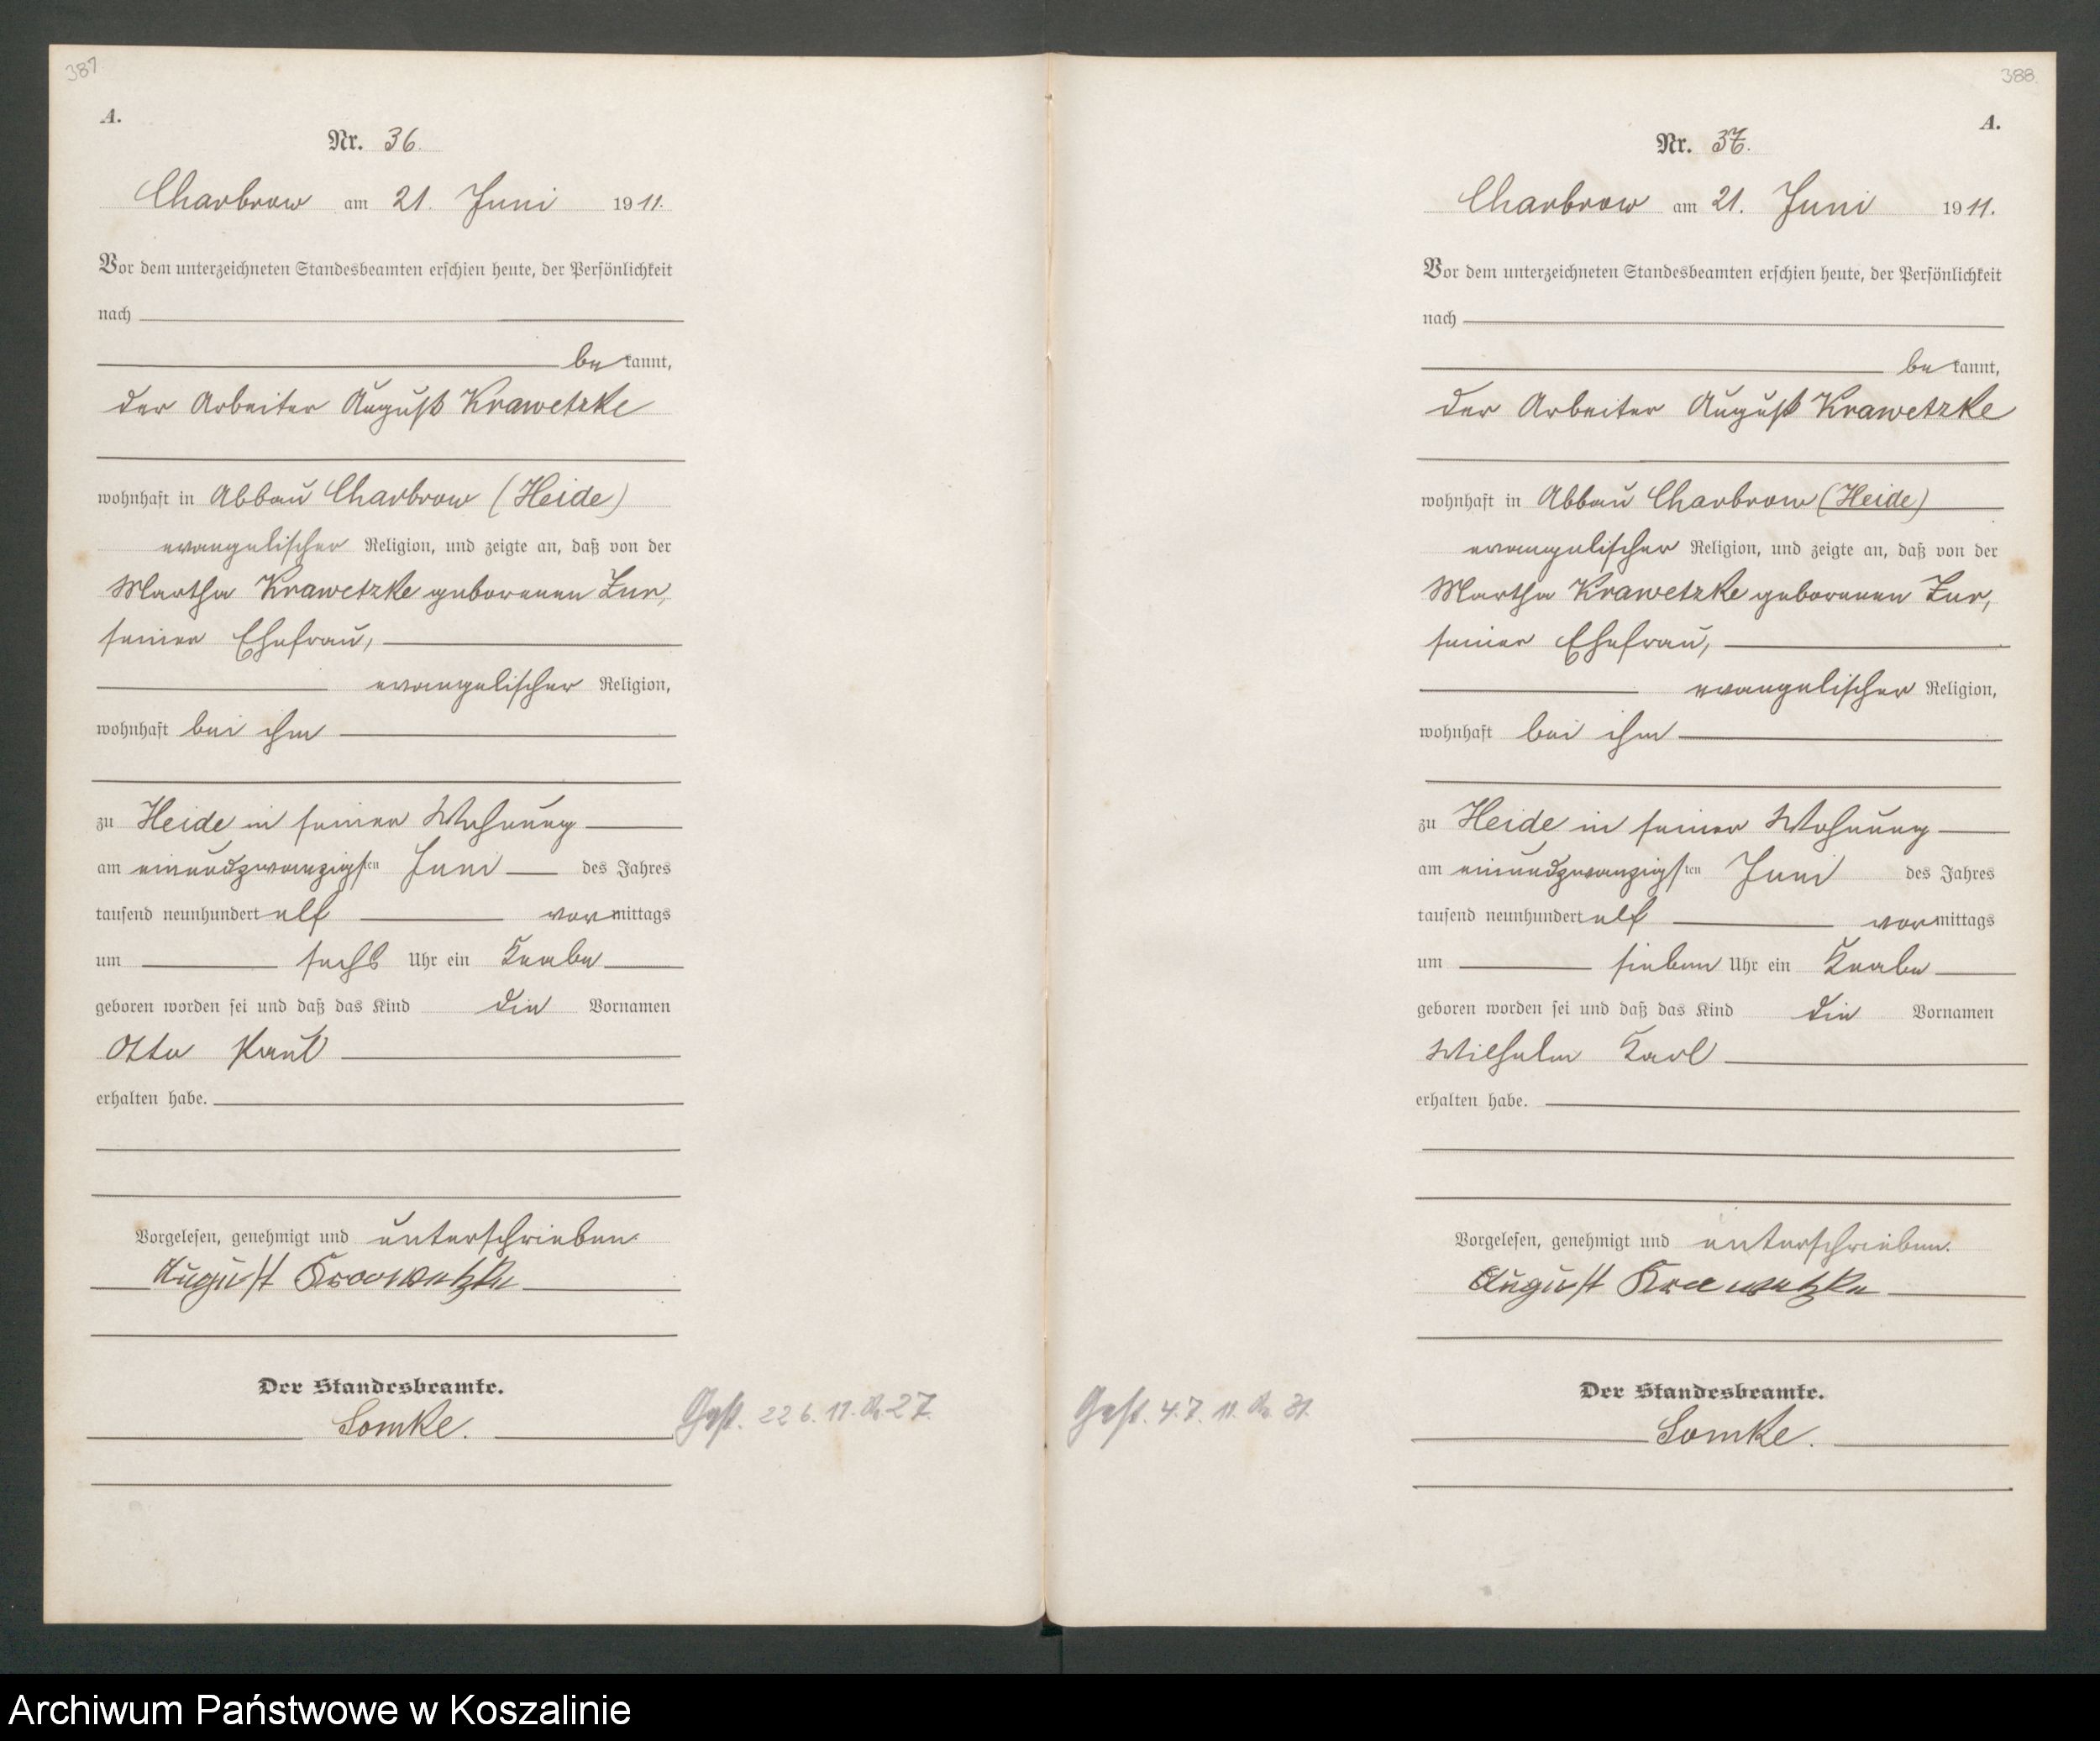 387
A.
Nr. 36.
Charbrow am 21. Juni 1911.
Vor dem unterzeichneten Standesbeamten erschien heute, der Persönlichkeit
nach
be kannt,
der Arbeiter August Krawetzke
wohnhaft in Abbau Charbrow (Heide)
evangelischer Religion, und zeigte an, daß von der
Martha Krawetzke geborenen Zur,
seiner Ehefrau,
evangelischer Religion,
wohnhaft bei ihm
zu Heide in seiner Wohnung
am einundzwanzigsten Juni des Jahres
tausend neunhundert elf vormittags
um sechs Uhr ein Knabe
geboren worden sei und daß das Kind die Vornamen
Otto Paul
erhalten habe.
Vorgelesen, genehmigt und unterschrieben.
August Krawetzke
Der Standesbeamte.
Lomke.
Gest. 22 6. 11. Nr. 27.
388.
A.
Nr. 37.
Charbrow am 21. Juni 1911.
Vor dem unterzeichneten Standesbeamten erschien heute, der Persönlichkeit
nach
be kannt,
der Arbeiter August Krawetzke
wohnhaft in Abbau Charbrow (Heide)
evangelischer Religion, und zeigte an, daß von der
Martha Krawetzke geborenen Zur,
seiner Ehefrau,
evangelischer Religion,
wohnhaft bei ihm
zu Heide in seiner Wohnung
am einundzwanzigsten Juni des Jahres
tausend neunhundert elf vormittags
um sieben Uhr ein Knabe
geboren worden sei und daß das Kind die Vornamen
Wilhelm Karl
erhalten habe.
Vorgelesen, genehmigt und unterschrieben.
August Krawetzke
Der Standesbeamte.
Lomke.
Gest. 4. 7. 11. Nr. 31.
Archiwum Państwowe w Koszalinie